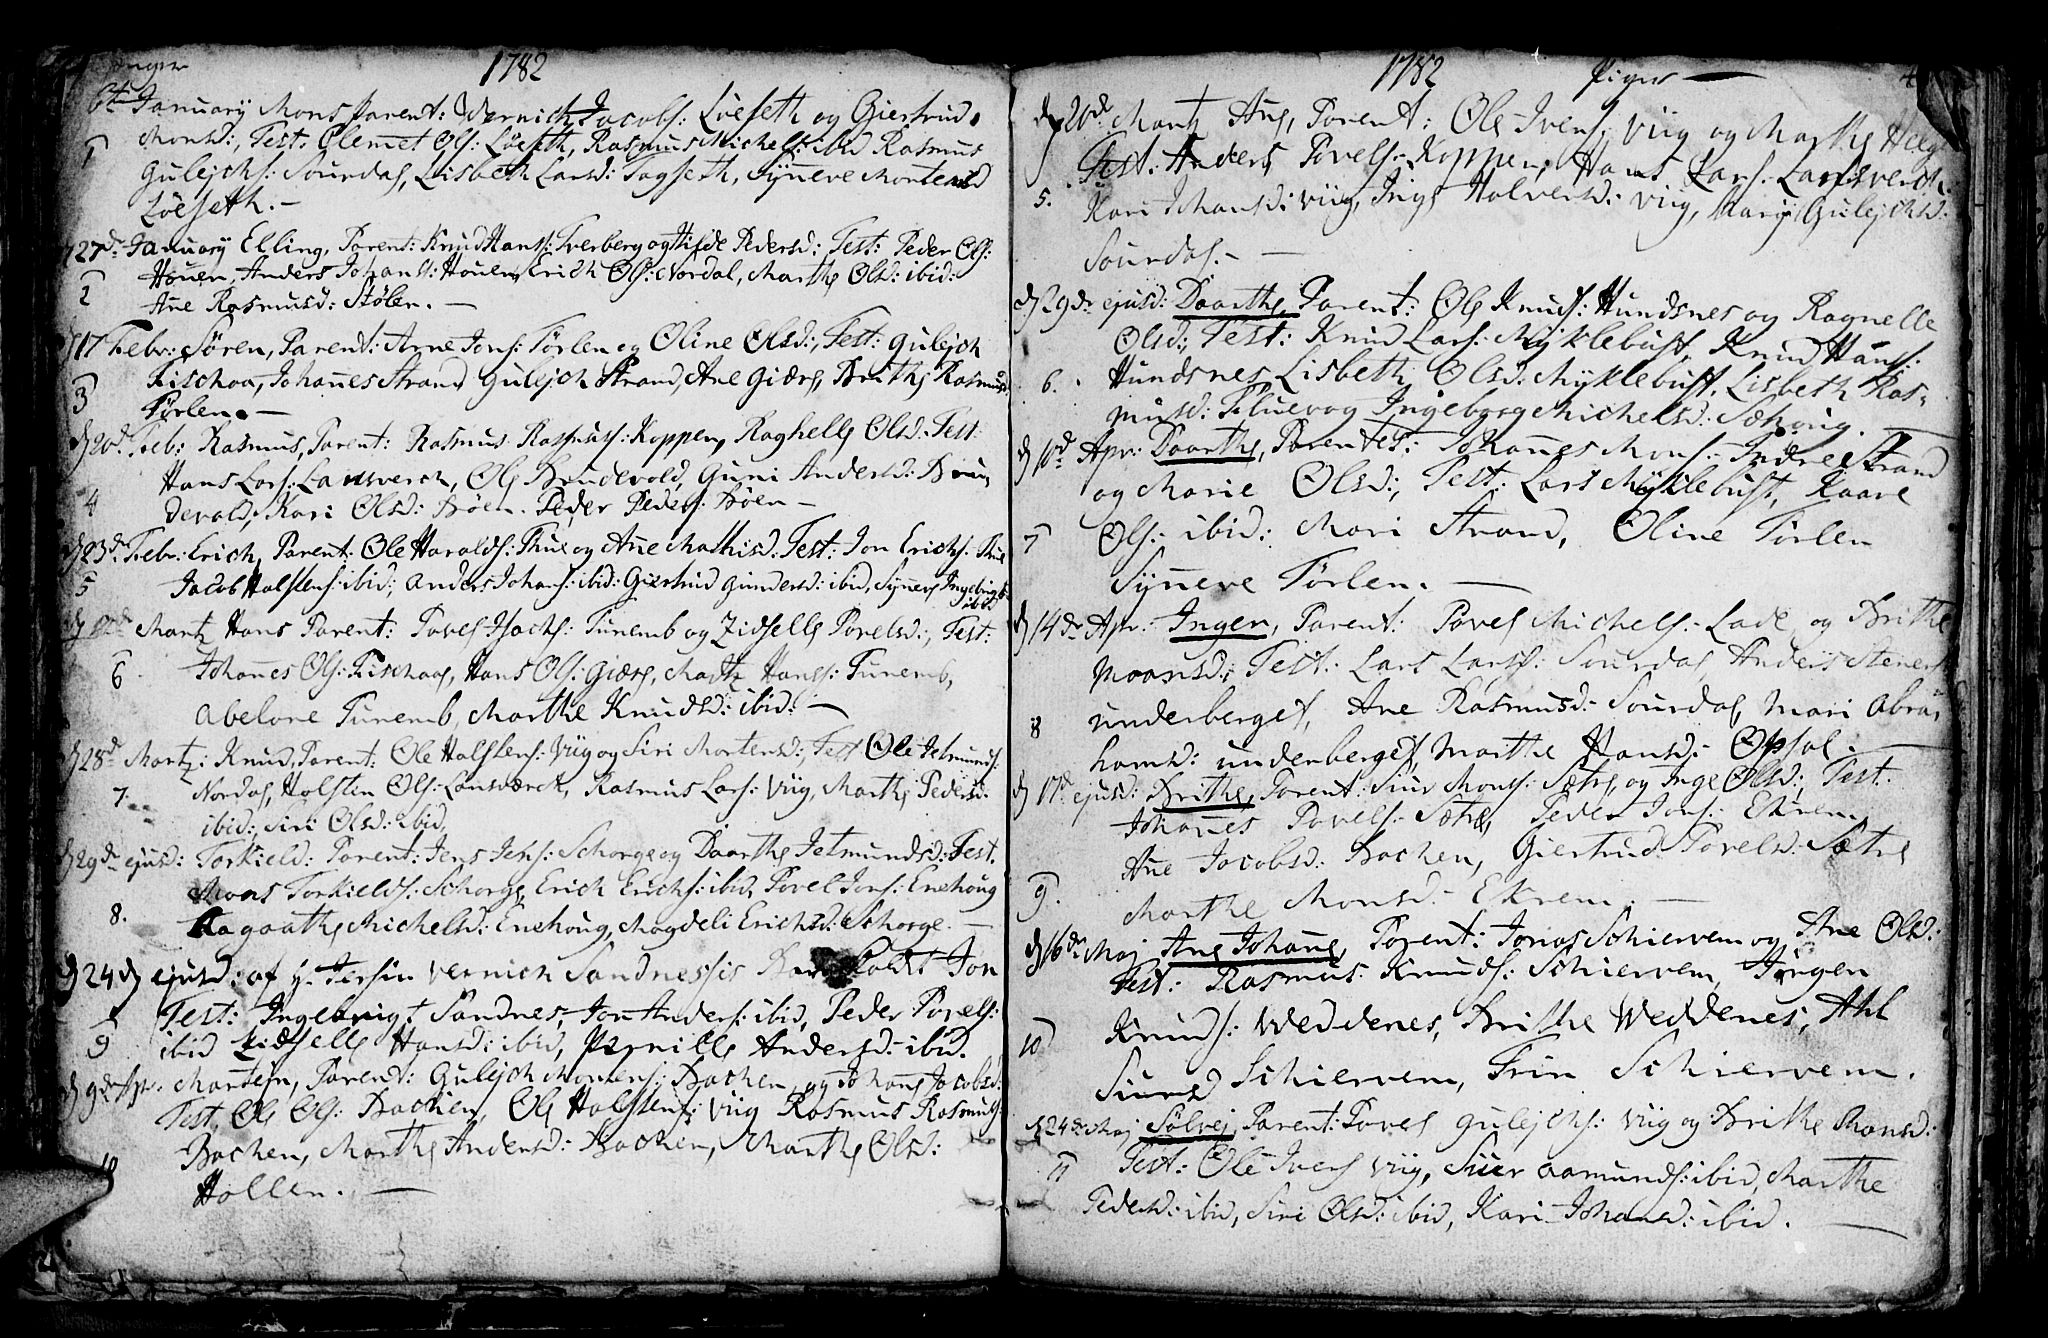 1782
6te January Mons Parent: Wernich Jacobs: Löeseth og Giertrud
Monsd:, Test: Clemet Ols: Löeseth, Rasmus Michels: ibid Rasmus
1
Gulejchs: Sourdal, Lisbeth Larsd: Tagseth, Syneve Mortensd
Löeseth. —
d 27de January Elling, Parent: Knud Hans: Tverberg og Hilde Pedersd: Test: Peder Ols:
Houen, Anders Johans: Houen, Erich Ols: Nordal, Marthe Olsd: ibid:
2
Ane Rasmusd: Stölen. —
d 17 Febr: Sören, Parent: Arne Jons: Törlen og Oline Olsd:, Test: Gulejch
Fischaa, Johanes Strand Gulejch Strand, Ane Giære, Brithe Rasmusd:
3
Törlen. —
d 20de Feb: Rasmus, Parent: Rasmus Rasmus: Koppen, Raghelle Olsd: Test
Hans Lars: Lansverch, Ole Brudevold, Guni Andersd: Bru
4
devold, Kari Olsd: Böen. Peder Peders: Böen —
d 23de Febr: Erich, Parent: Ole Haralds: Thue og Ane Mathisd: Test: Jon Erichs: Thue
5
Jacob Halstens: ibid:, Anders Johans: ibid: Giertrud Gundersd: ibid, Synneve Ingebrigtsd
ibid
Martz Hans Parent: Povel Isachs: Tunemb og Zidselle Povelsd:, Test:
6
Johanes Ols: Fischaa, Hans Ols: Giære, Madtz Hans: Tunemb,
Abelone Tunemb, Marthe Knudsd: ibid: —
d 28de Martz: Knud, Parent: Ole Halstens: Viig og Siri Mortensd:, Test Ole Jetmunds:
7.
Nordal, Halsten Ols: Lansværck, Rasmus Lars: Viig, Marthe Pedersd:
ibid:, Siri Olsd: ibid,
d 29de ejusd: Torkield: Parent: Jens Jens: Schorge og Daarthe Jetmundsd: Test.
Mons Torkields: Schorge, Erich Erichs: ibid, Povel Jons: Enehoug
8.
Aagaathe Michelsd: Enehoug, Magdeli Erichsd: Schorge. —
d 24 d ejusd: af H. Jersin Vernich Sandnessis Jon
Test: Ingebrigt Sandnes, Jon Anders: ibid, Peder Povels:
9
ibid Zidselle Hansd: ibid, Pernille Andersd: ibid.
d 9de Apr. Marten, Parent: Gulejch Mortens: Bachen, og Johane Jacobsd:
Test. Ole Ols: Bachen, Ole Halstens: Viig Rasmus Rasmus:
Bachen, Marthe Andersd: Bachen, Marthe Olsd:
10
Hollen. —
1782 Piger —
4
d 20de Martz Ane, Parent: Ole Ivers: Viig og Marthe Helg
Test: Anders Povels: Koppen, Hans Lars: Lansverch.
5.
Kari Johansd: Viig, Inge Halversd: Viig, Mari Gulejchsd:
Sourdal. —
d 29de ejusd: Daarthe, Parent: Ole Knuds: Hundsnes og Ragnelle
Olsd:, Test: Knud Lars: Myklebust, Knud Hans:
6.
Hundsnes Lisbeth Olsd: Myklebust. Lisbeth Ras-
musd: Fluevog Ingeborg Michelsd: Sæhoug. —
d 10de Apr: Daarthe, Parentes: Johanes Mons: Indre Strand
og Marie Olsd:, Test: Lars Myklebust, Kaare
7
Ols: ibid: Mari Strand, Oline Törlen
Syneve Törlen. —
d 14de Apr: Inger, Parent: Povel Michels: Lade og Brithe
Moansd:, Test: Lars Lars: Sourdal Anders Stener
8
underberget, Ane Rasmusd: Sourdal, Mari Abra
hamsd: underberget, Marthe Hansd: Opsal. —
d 17de ejusd: Brithe, Parent: Siur Mons: Sætre, og Inge Olsd:, Test:
Johanes Povels: Sætre, Peder Jons: Ekrem,
Ane Jacobsd: Bachen, Giertrud Povelsd: Sætre
9.
Marthe Monsd: Ekrem. —
d 16de Maj Ane Johane, Parent: Jonas Schiervem og Ane Olsd:
Test: Rasmus Knuds: Schiervem, Jörgen
10
Knuds: Weddenes, Brithe Weddenes, Ahl
Siursd Schiervem, Trin Schiervem.
d 24de Maj Sölvej Parent: Povel Gulejchs: Viig og Brithe Hansd:
11
Test: Ole Ivers Viig, Siver Aamunds: ibid, Marthe
Pedersd: ibid, Siri Olsd: ibid, Kari Johansd: ibid. —